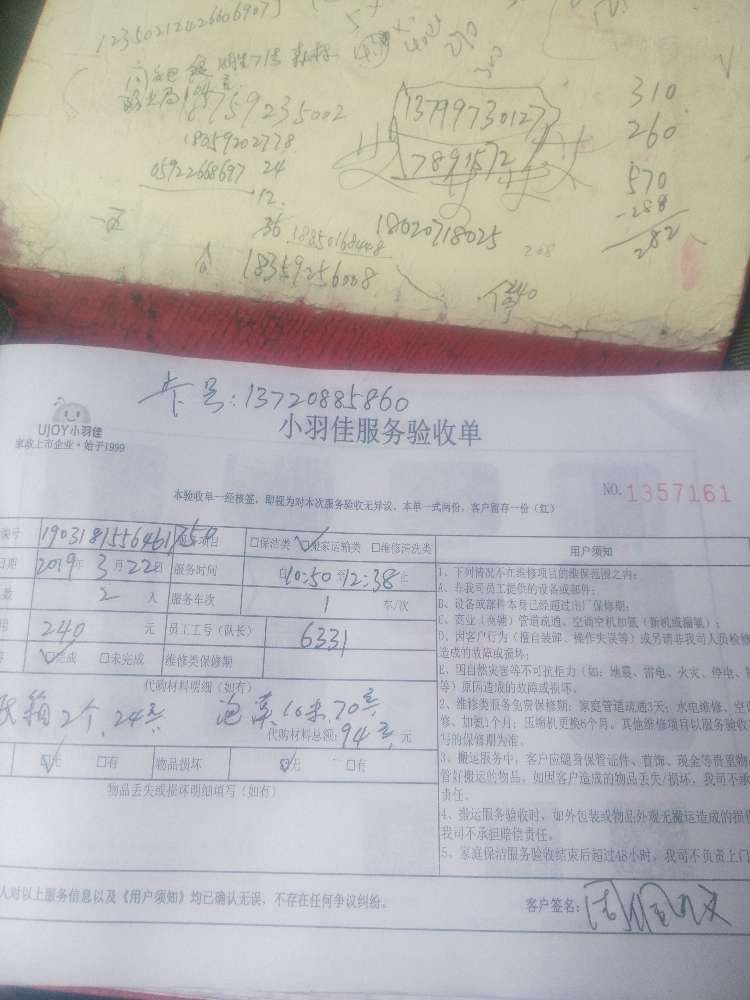 1235021242660690
18759235002
18059202778
05922668697 24
12
36 18850168448
18359256008
13799730127
7891572
18020718025
208
240
310
260
570
-288
282
卡号:13720885860
UJOY小羽佳
家政上市企业·始于1999
小羽佳服务验收单
本验收单一经核签,即视为对本次服务验收无异议。本单一式两份,客户留存一份(红)
NO.1357161
编号 1903181556461350 项目 □保洁类 ☑搬家运输类 □维修清洗类
日期 2019年3月22日 服务时间 自10:50至12:38止
数 2 人 服务车次 1 车/次
用 240 元 员工工号(队长) 6331
☑完成 □未完成 维修类保修期
代购材料明细(如有)
纸箱2个,24元 泡菜,10米,70元
代购材料总额:94元 元
☑无 □有 物品损坏 ☑无 □有
物品丢失或损坏明细填写(如有)
用户须知
1、下列情况不在维修项目的维保范围之内:
A、非我司员工提供的设备或部件;
B、设备或部件本身已经超过出厂保修期;
C、商业(商铺)管道疏通、空调空机加氟(新机或漏氟);
D、因客户行为(擅自装卸、操作失误等)或另请非我司人员检修
造成的故障或损坏;
E、因自然灾害等不可抗拒力(如:地震、雷电、火灾、停电、
等)原因造成的故障或损坏。
2、维修类服务免费保修期:家庭管道疏通3天;水电维修、空
修、加氟1个月;压缩机更换6个月。其他维修项目以服务验收
写的保修期为准。
3、搬运服务中,客户应随身保管证件、首饰、现金等贵重物
管好搬运的物品。如因客户造成的物品丢失/损坏,我司不承
责任。
4、搬运服务验收时,如外包装或物品外观无搬运造成的损
我司不承担赔偿责任。
5、家庭保洁服务验收结束后超过48小时,我司不负责上门
人对以上服务信息以及《用户须知》均已确认无误,不存在任何争议纠纷。
客户签名: